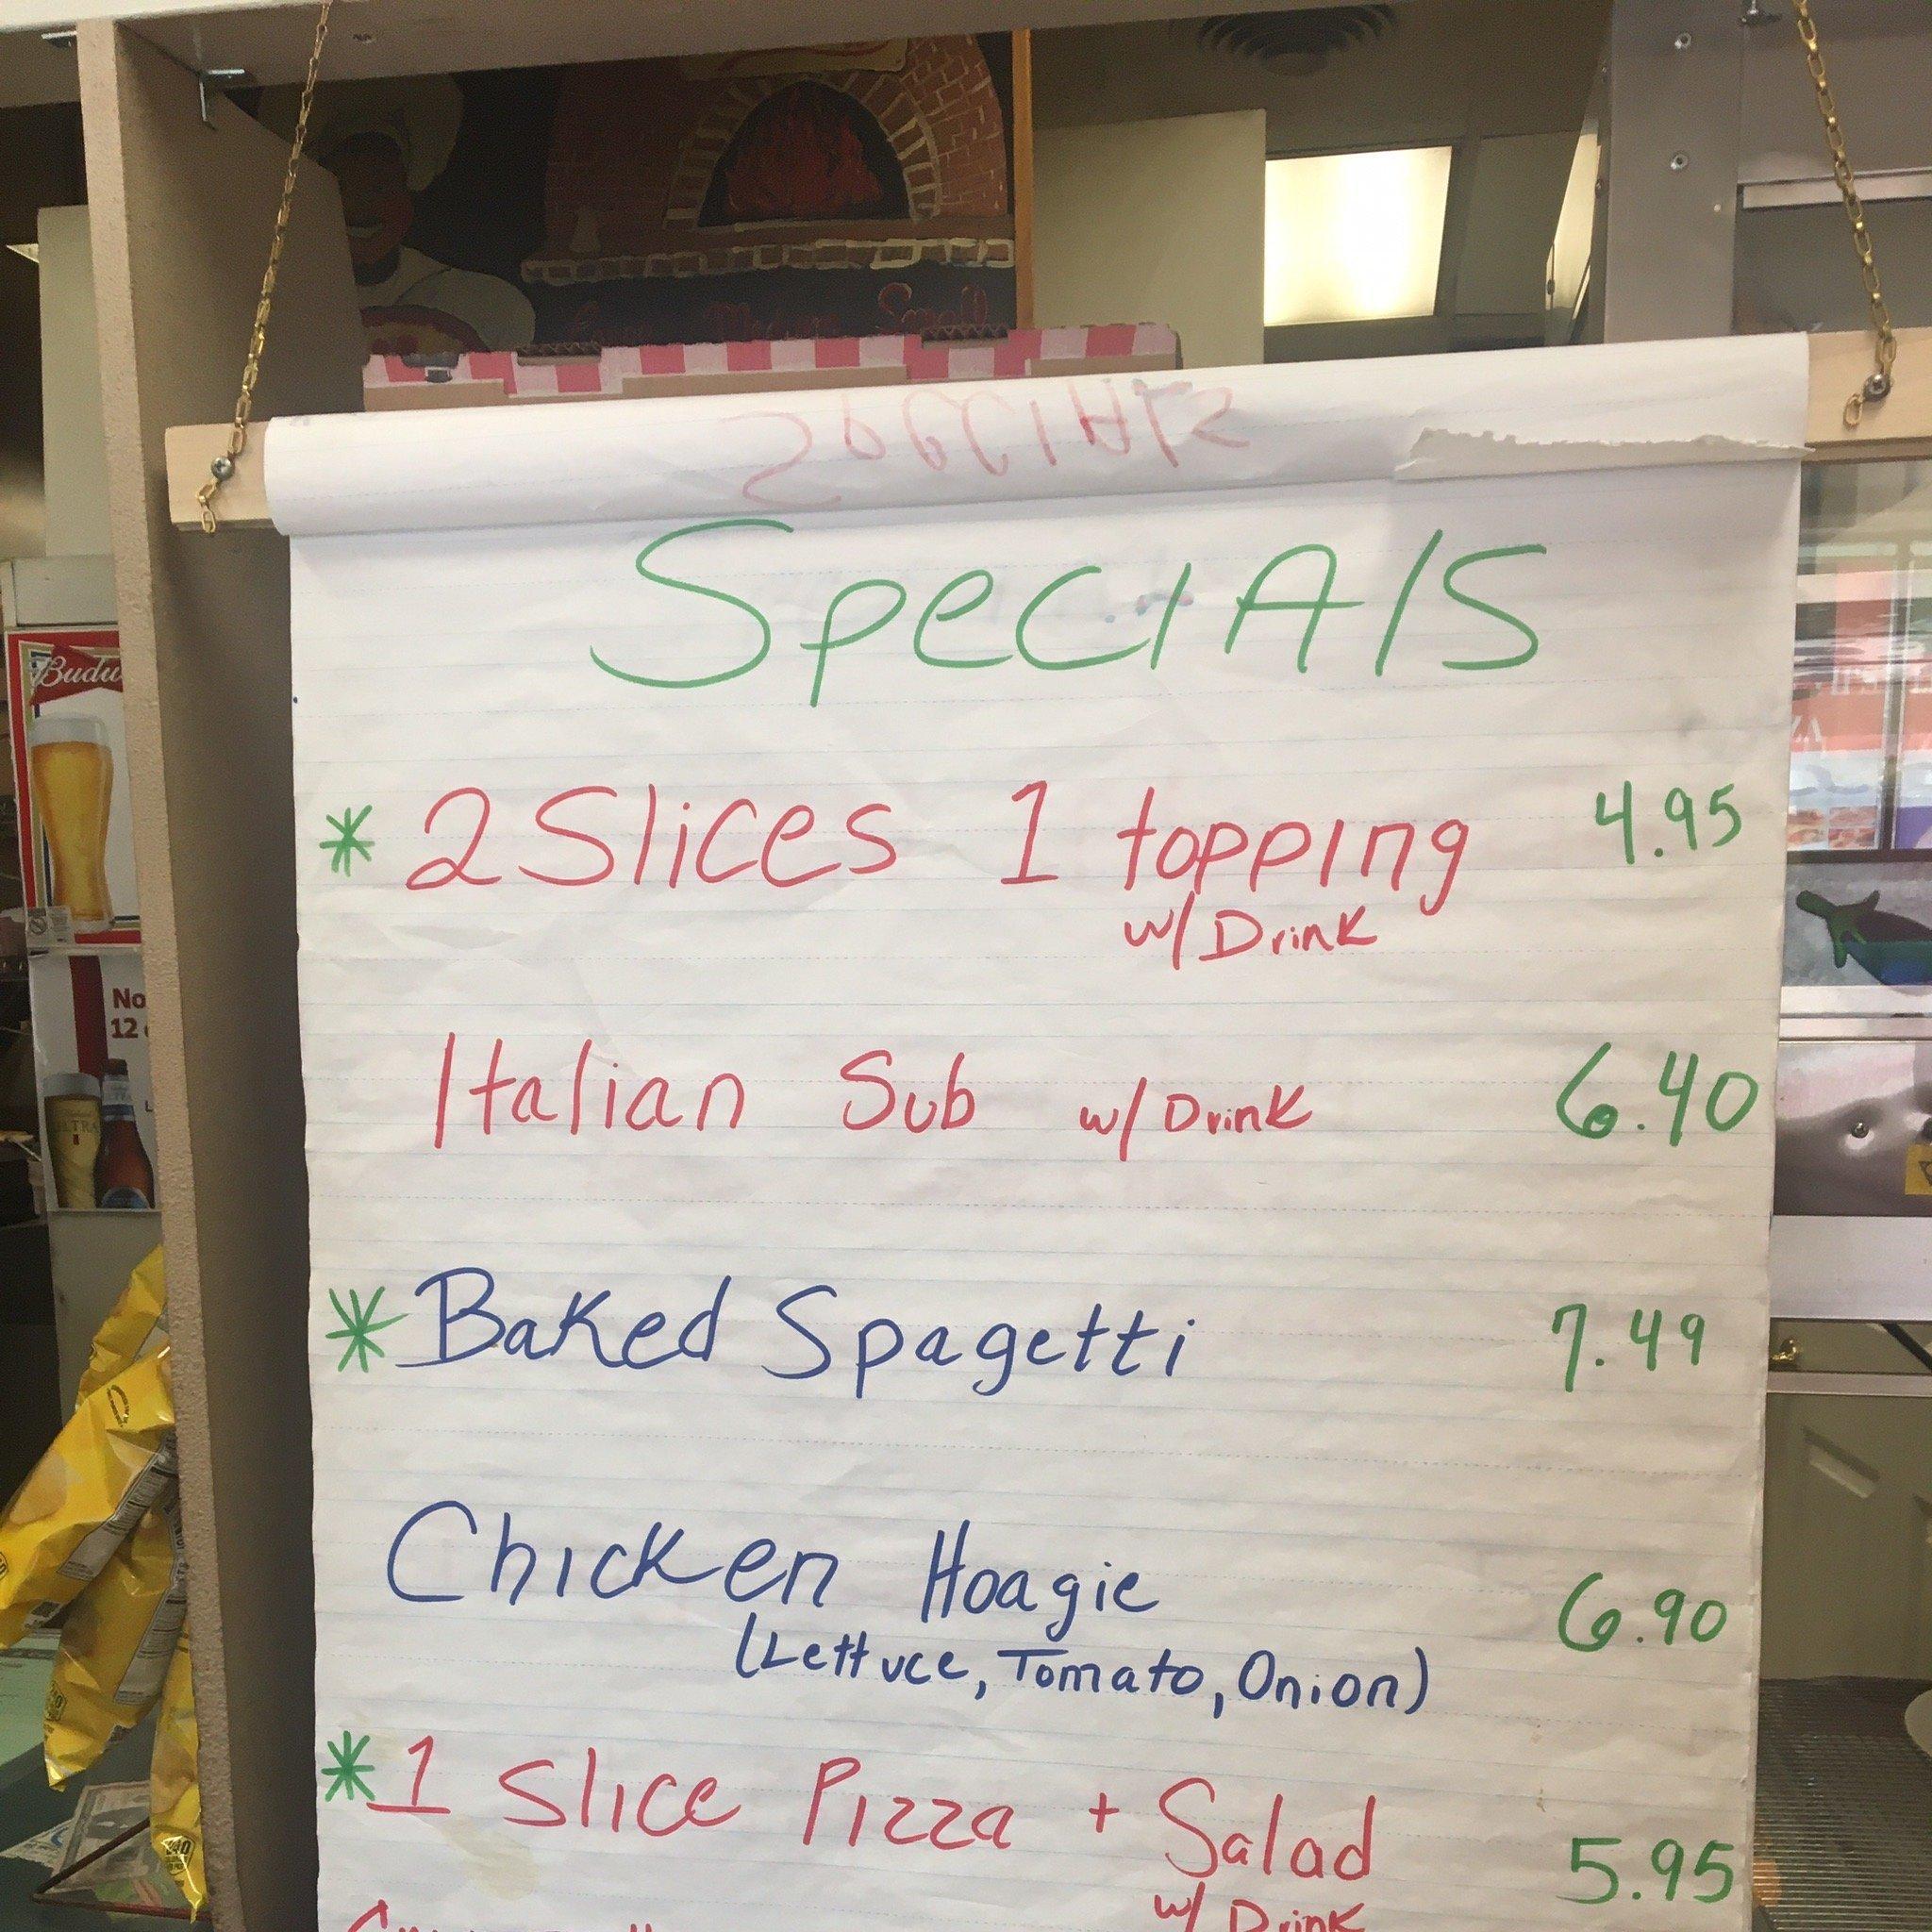 SPECIALS
SpeciAls
* 2 Slices 1 topping 4.95
w/ Drink
Italian Sub w/ Drink 6.40
* Baked Spagetti 7.49
Chicken Hoagie 6.90
(Lettuce, Tomato, Onion)
* 1 Slice Pizza + Salad 5.95
w/ Drink
Budw
No
12